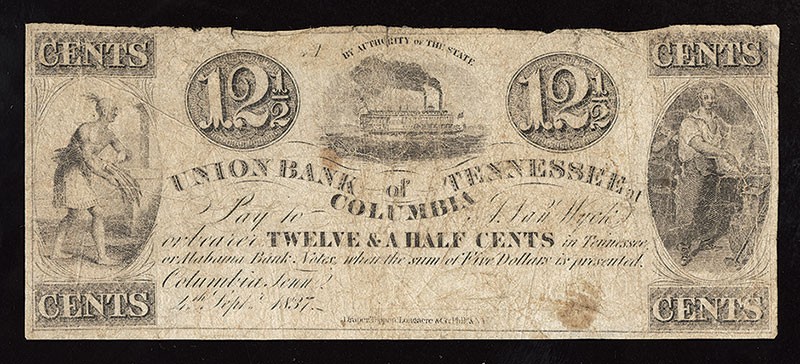 CENTS
CENTS
BY AUTHORITY OF THE STATE
12 1/2
12 1/2
UNION BANK of TENNESSEE at
COLUMBIA
Pay to
or bearer TWELVE & A HALF CENTS in Tennessee,
or Alabama Bank Notes, when the sum of Five Dollars is presented.
Columbia Tenn.
4th Sept. 1837
Draper, Toppan, Longacre & Co. Phila & N.Y.
CENTS
CENTS